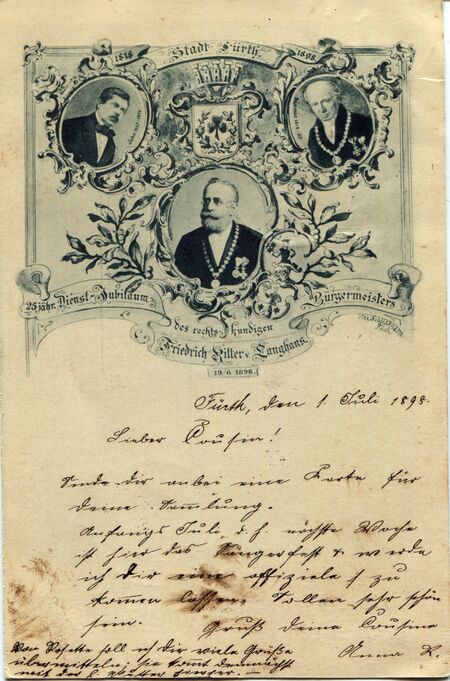 1818
Stadt Fürth
1898
25 jähr. Dienst-Jubiläum
Bürgermeisters
des rechts-kundigen
Friedrich Ritter v. Langhans.
19/6 1898.
Fürth, den 1 Juli 1898.
Lieber Cousin!
Sende dir anbei eine Karte für
deine Sammlung.
Anfangs Juli d. h. nächste Woche
ist hier das Sängerfest & werde
ich dir eine offiziele zu
komen lassen. Sollen sehr schön
sein.
Gruß deine Cousine
Anna
Von Babette soll ich dir viele Grüße
übermitteln; sie komt demnächst
mit der l. Mutter hierher. —